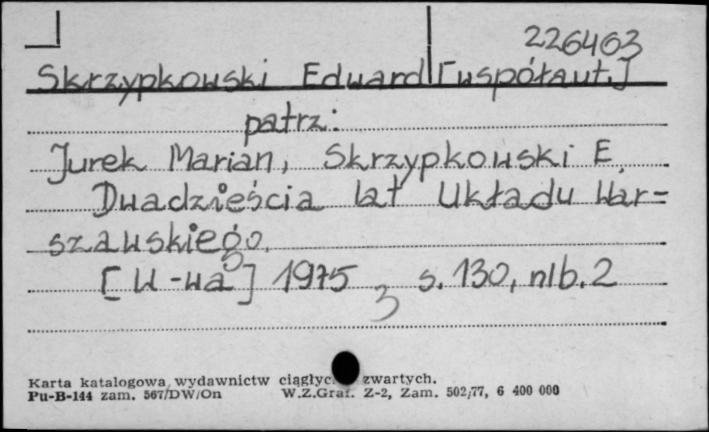 226463
Skrzypkowski Eduard [współaut.]
patrz:
Jurek Marian, Skrzypkowski E.
Dwadzieścia lat Układu War=
szawskiego.
[W-wa] 1975 s. 130, nlb. 2
3
Karta katalogowa wydawnictw ciągłyc zwartych.
Pu-B-144 zam. 567/DW/On W.Z.Graf. Z-2, Zam. 502/77, 6 400 000